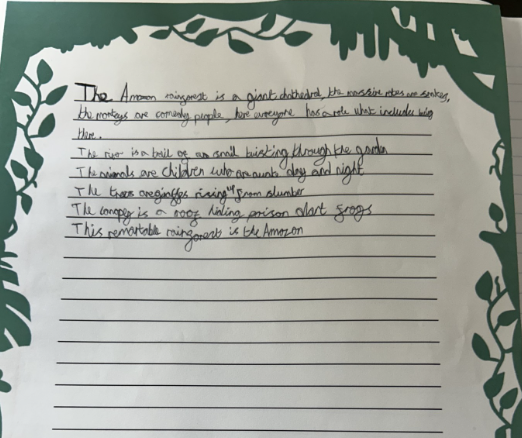 The Amazon rainforest is a giant cathedral, the massive are
the monkeys are comedy people, here everyone has a role what includes being
here.
The river is a trail of an snail twisting through the garden
The animals are children who are awake day and night
The trees are giraffes rising up from slumber
The canopy is a roof hiding poison dart frogs
This remarkable rainforest is the Amazon